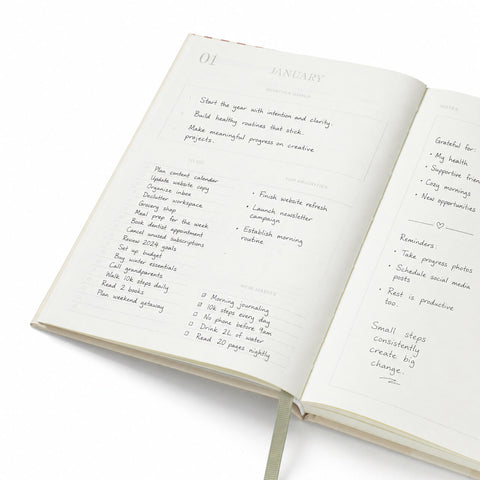 01
JANUARY
MONTHLY GOALS
Start the year with intention and clarity.
Build healthy routines that stick.
Make meaningful progress on creative
projects.
TO DO
Plan content calendar
Update website copy
Organise inbox
Declutter workspace
Grocery shop
Meal prep for the week
Book dentist appointment
Cancel unused subscriptions
Review 2024 goals
Set up budget
Buy winter essentials
Call grandparents
Walk 10k steps daily
Read 2 books
Plan weekend getaway
TOP PRIORITIES
• Finish website refresh
• Launch newsletter
campaign
• Establish morning
routine
NEW HABITS
Morning journaling
10k steps every day
No phone before 9am
Drink 2L of water
Read 20 pages nightly
NOTES
Grateful for:
• My health
• Supportive frien
• Cosy mornings
• New opportunities
Reminders:
• Take progress photos
• Schedule social media
posts
• Rest is productive
too.
Small steps
consistently
create big
change.